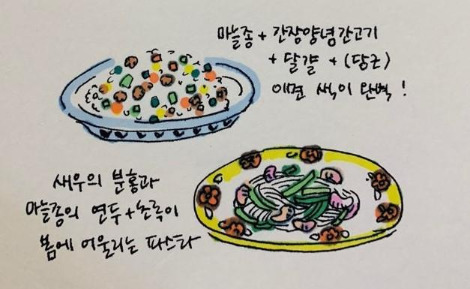 마늘종 + 간장양념간고기
+ 달걀 + (당근)
이면 색이 완벽!
새우의 분홍과
마늘종의 연두+초록이
봄에 어울리는 파스타